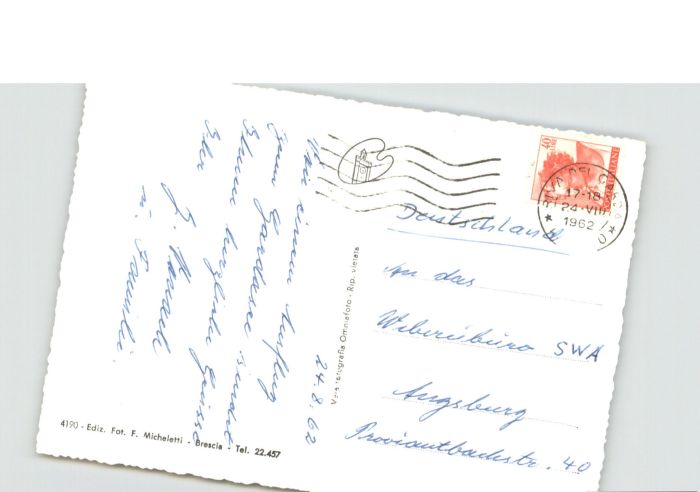 Von einem Ausflug
zum Gardasee sendet
Ihnen herzliche Grüsse
Ihr
u. Familie
24.8.62
Vera fotografia Omniafoto - Rip. vietata
4190 - Ediz. Fot. F. Micheletti - Brescia - Tel. 22.457
40
17-18
24·VIII
1962
Deutschland
An das
SWA
Augsburg
Proviantbachstr. 40